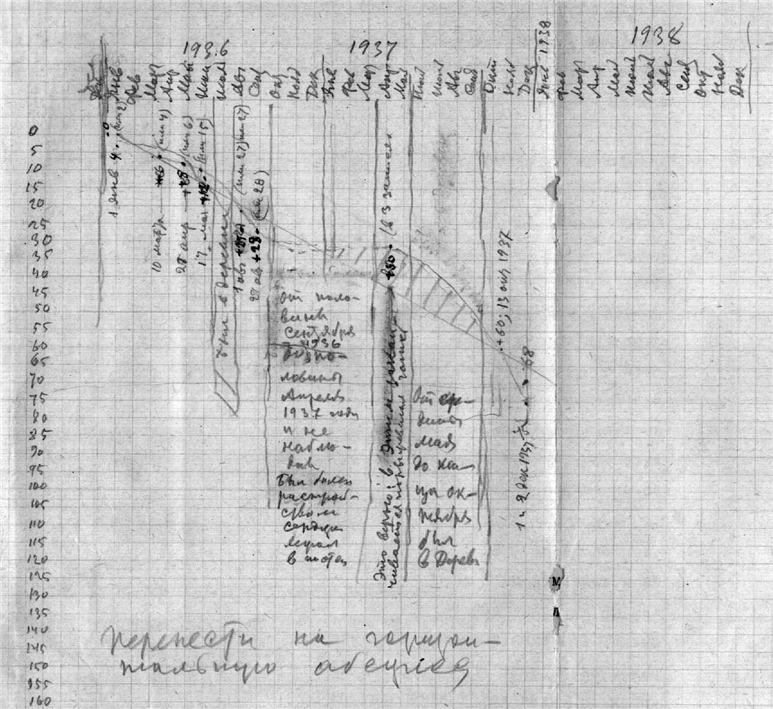 1936 1937 1938
Янв Фев Мар Апр Май Июн Июл Авг Сен Окт Нояб Дек Янв Фев Мар Апр Май Июн Июл Авг Сен Окт Нояб Дек Янв 1938 Фев Мар Апр Май Июн Июл Авг Сен Окт Нояб Дек
0
5
10
15
20
25
30
35
40
45
50
55
60
65
70
75
80
85
90
95
100
105
110
115
120
125
130
135
140
145
150
155
160
1 янв 4
10 март
28 апр
17 мая
был в деревне
1 авг
27 авг +29 (28)
От поло-
вины
Сентября
1936
до по-
ловины
Апреля
1937 года
я не
наблю-
дал
был болен
расстрой-
ством
сердца
лежал
+50 (в 3 записях
Это верно: в этом
От се-
мая
до кон-
ца ок-
тября
был
в Дерев
+60; 13 окт 1937
68
1 и 2 дек 1937
Перенести на горизон-
тальную абсцисс